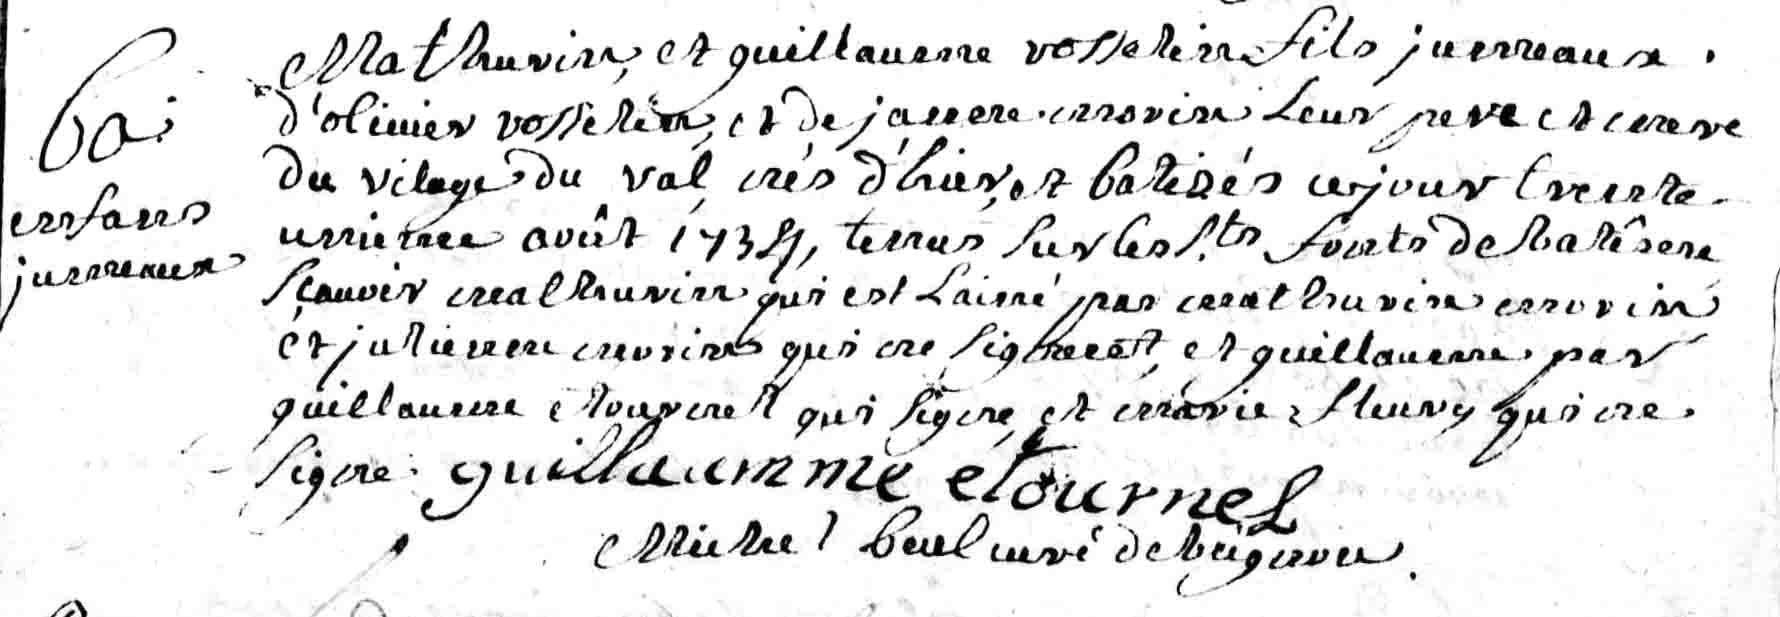 ba:
enfans
jumeaux
Mathurin, et guillaume rosselin fils jumeaux.
d'olivier rosselin, et de janne morin Leur pere et mere
du vilage du val, nés d'hier, et batisés ce jour trente
unieme août 1734, tenus sur les Sts fonts de batême
sçavoir mathurin qui est L'ainé par mathurin morin
et julienne morin qui ne signent, et guillaume par
guillaume etournel qui signe, et marie fleury qui ne
signe. guillaumme etournel
Michel curé de